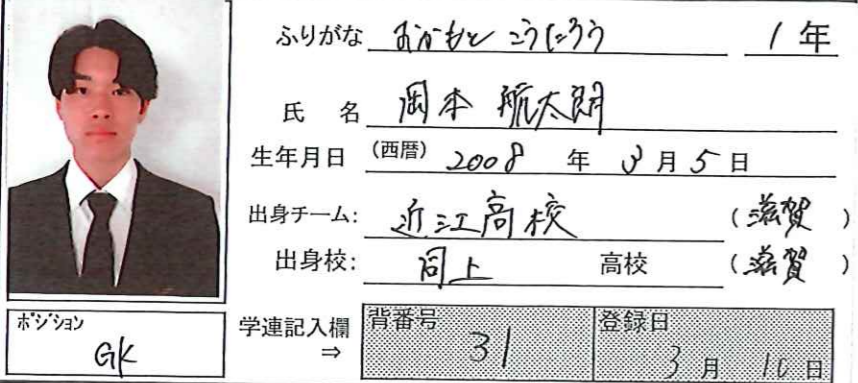 ふりがな おかもと こうたろう 1年
氏 名 岡本 航太朗
生年月日 (西暦) 2008 年 3月5日
出身チーム: 近江高校 (滋賀)
出身校: 同上 高校 (滋賀)
ポジション
GK
学連記入欄 ⇒
背番号 31
登録日 3月10日